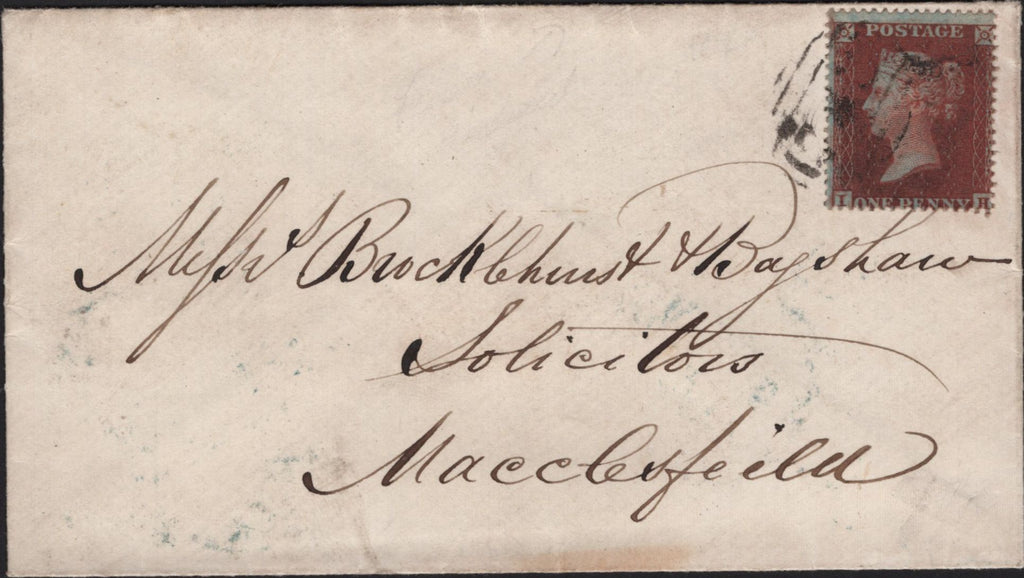 POSTAGE
I ONE PENNY H
Messrs Brocklehurst & Bagshaw
Solicitors
Macclesfeild